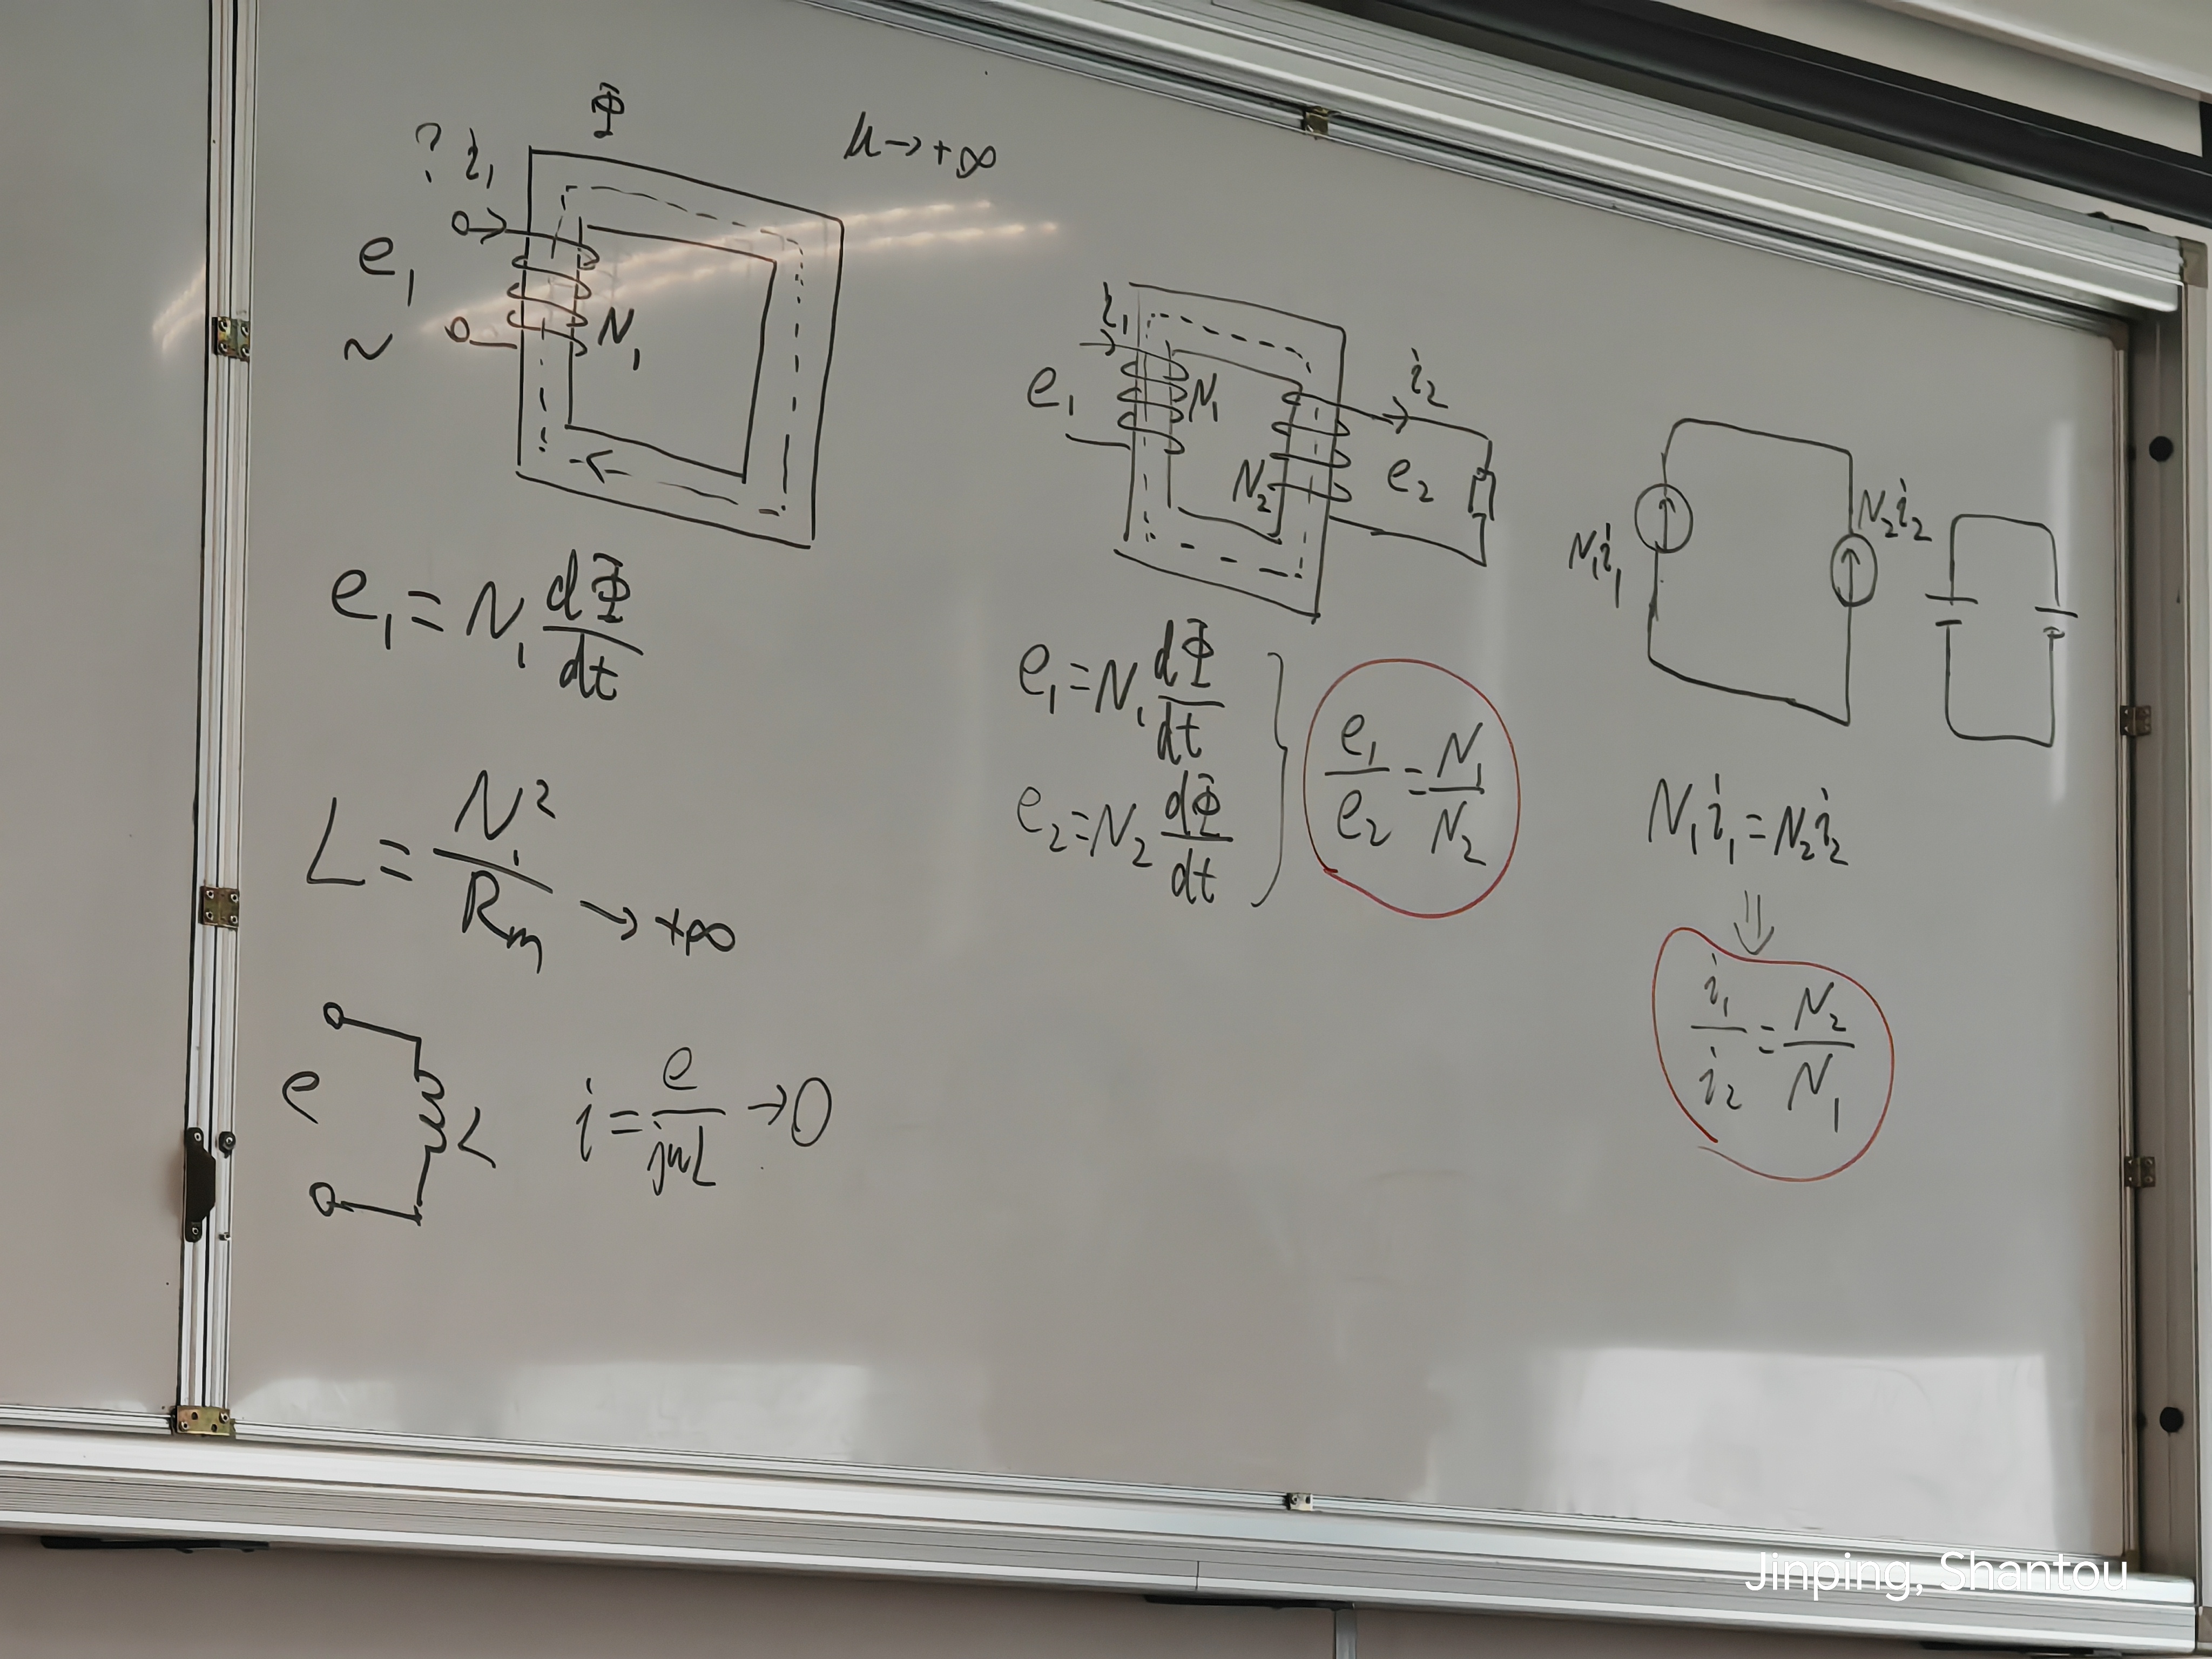 Φ
μ→+∞
? i₁
e₁
~
N₁
e₁ = N₁ dΦ/dt
L = N₁²/Rm → +∞
e
L
i = e/jωL → 0
i₁
e₁
N₁
i₂
N₂
e₂
e₁ = N₁ dΦ/dt
e₂ = N₂ dΦ/dt
e₁/e₂ = N₁/N₂
N₁i₁
N₂i₂
N₁i₁ = N₂i₂
⇓
i₁/i₂ = N₂/N₁
Jinping, Shantou